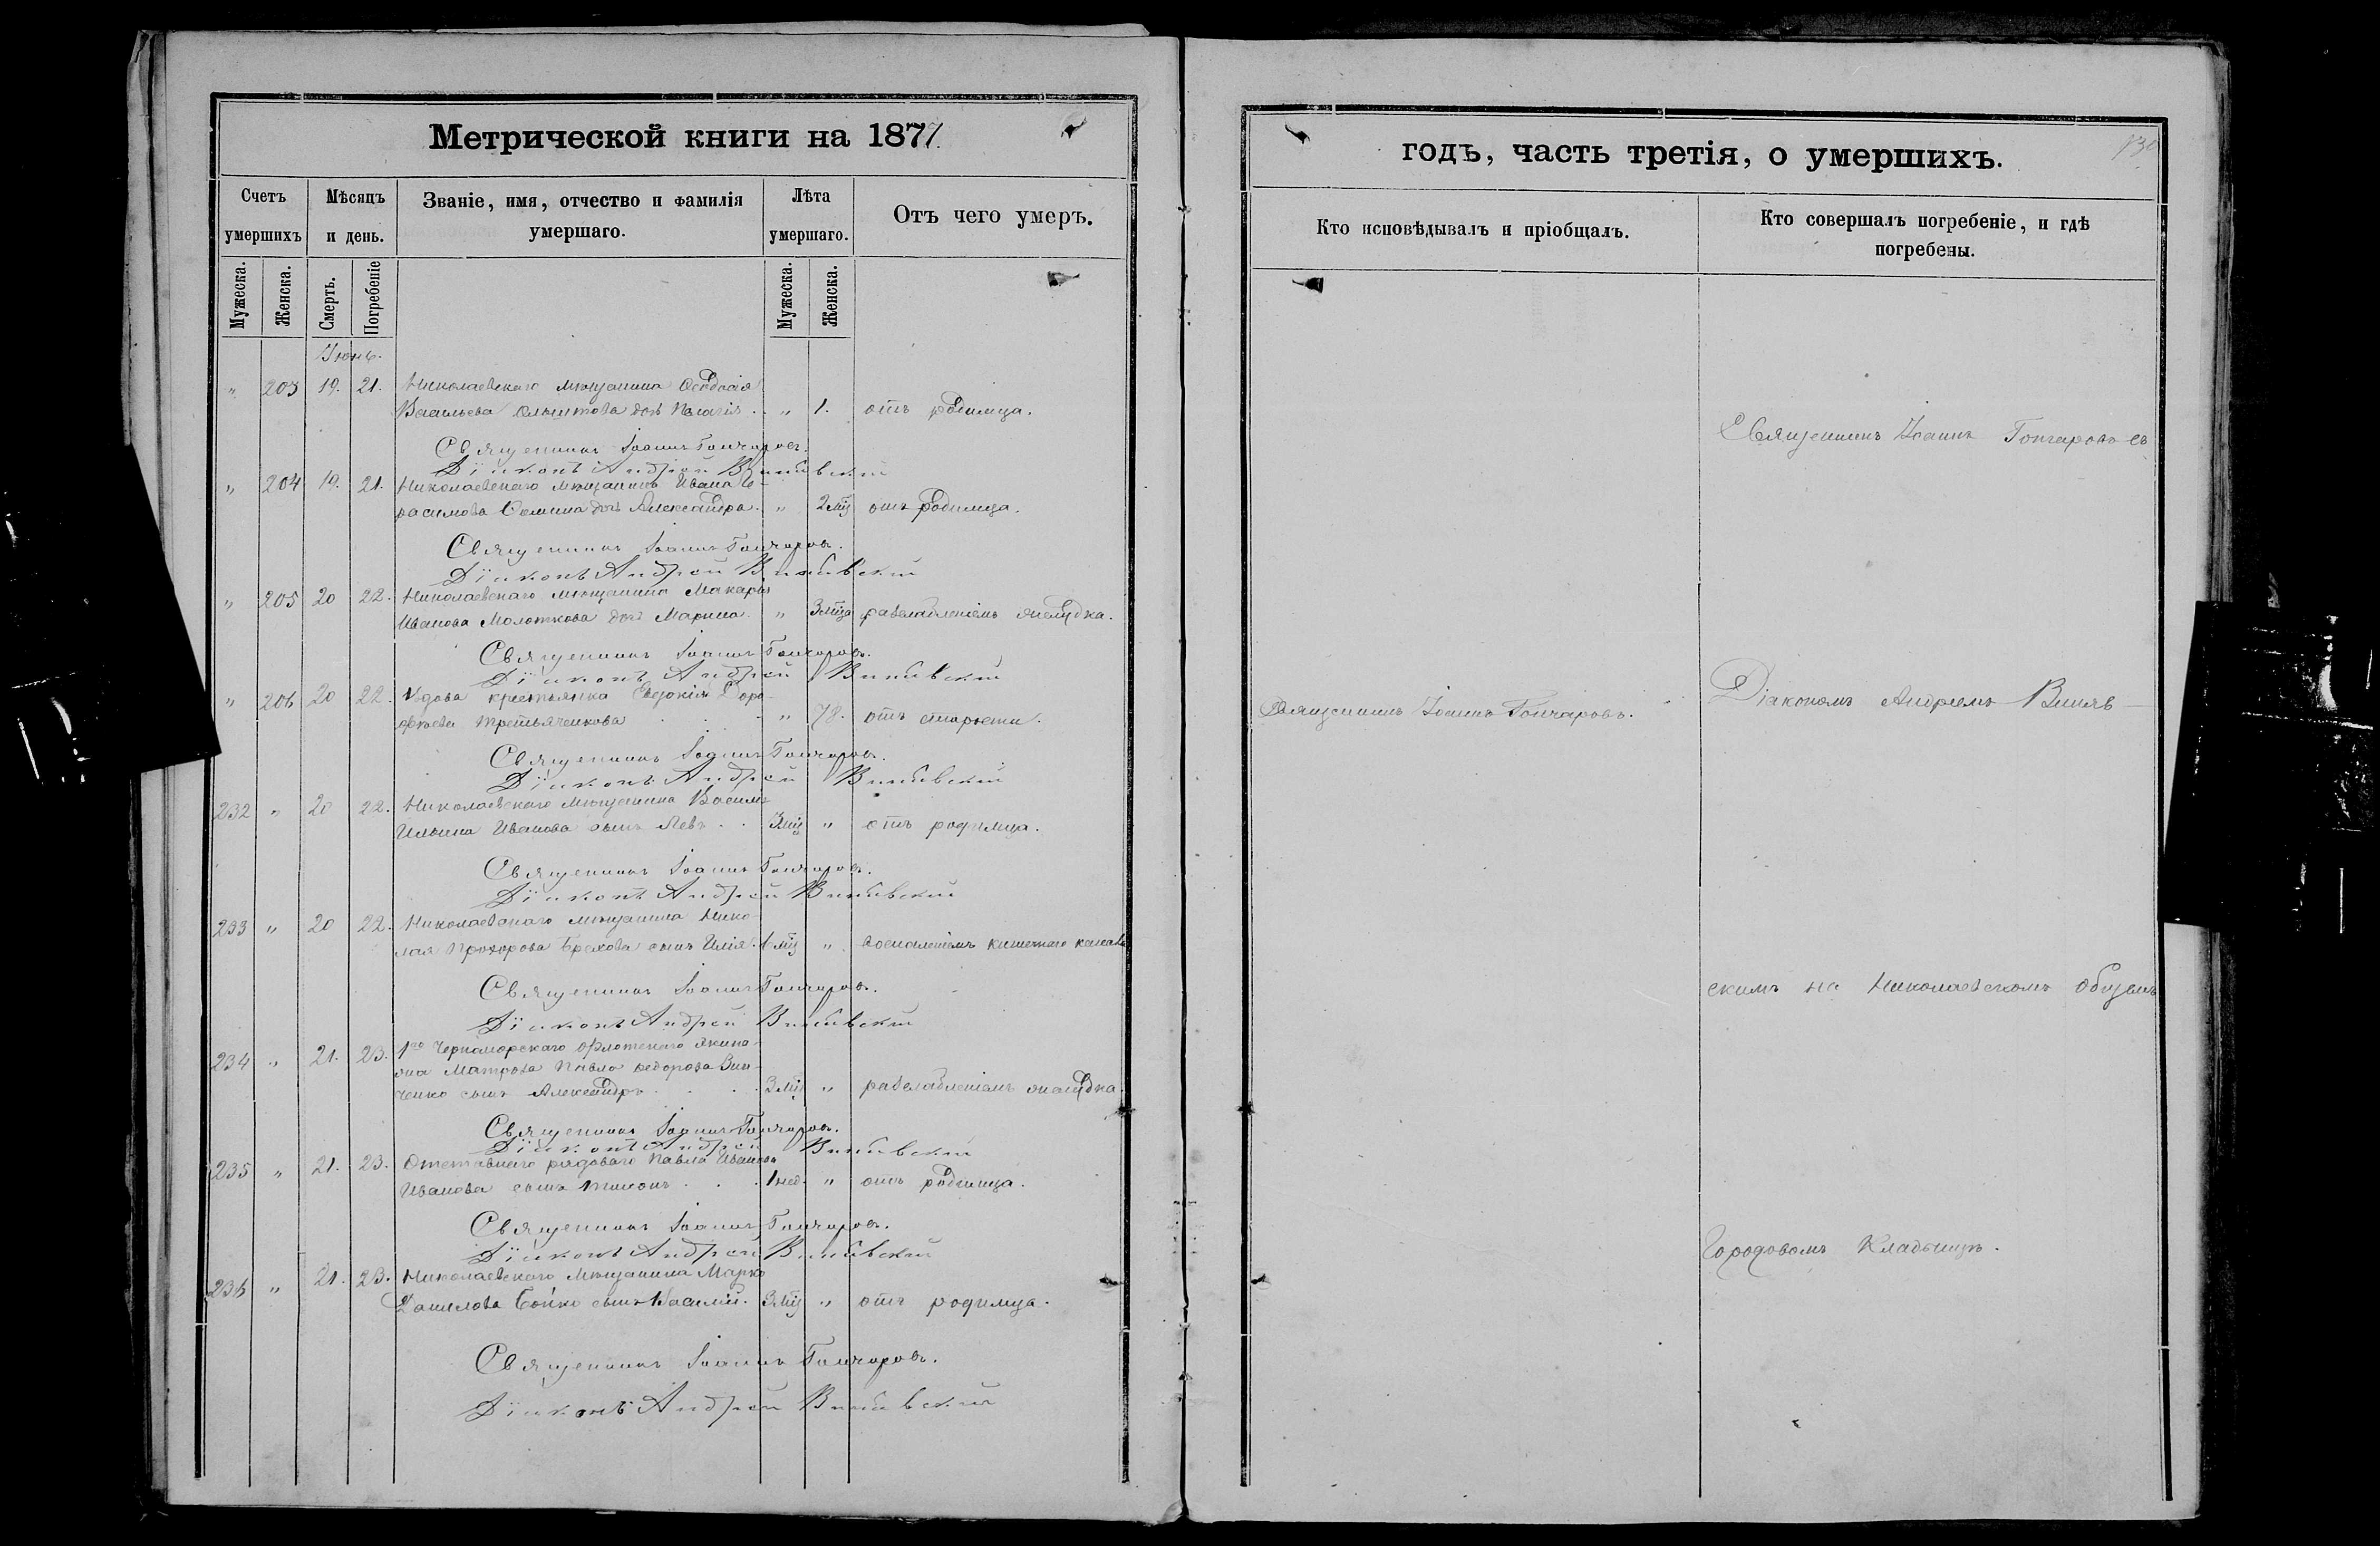 Метрической книги на 1877
Счетъ умершихъ
Мѣсяцъ и день.
Званіе, имя, отчество и фамилія умершаго.
Лѣта умершаго.
Отъ чего умеръ.
Мужеска.
Женска.
Смерть.
Погребеніе
Мужеска.
Женска.
Июнь.
" 203 19. 21. Николаевскаго мѣщанина
Васильева дочь Пелагія . . " 1. отъ родимца.
Священникъ Іоаннъ Гончаровъ.
Діаконъ Андрей
" 204 19. 21. Николаевскаго мѣщанина Ивана Ге-
расимова Сомина дочь Александра. " 2 мѣц отъ родимца.
Священникъ Іоаннъ Гончаровъ.
Діаконъ Андрей
" 205 20 22. Николаевскаго мѣщанина Макарія
Иванова Молоткова дочь Марина. " 3 мѣца разслабленіемъ желудка.
Священникъ Іоаннъ Гончаровъ.
Діаконъ Андрей
" 206 20 22. Вдова крестьянка Евдокія Доро-
фѣева Третьяченкова . . . " 78. отъ старости.
Священникъ Іоаннъ Гончаровъ.
Діаконъ Андрей
232 " 20 22. Николаевскаго мѣщанина Василія
Ильина Иванова сынъ Левъ . . 3 мѣц " отъ родимца.
Священникъ Іоаннъ Гончаровъ.
Діаконъ Андрей
233 " 20 22. Николаевскаго мѣщанина Нико-
лая Прохорова сынъ Илія. мѣц " воспаленіемъ кишечнаго канала
Священникъ Іоаннъ Гончаровъ.
Діаконъ Андрей
234 " 21. 23. 1го Черноморскаго флотскаго экипа-
жа матроза Павла Ѳедорова Зин-
ченко сынъ Александръ . . . . 3 мѣц " разслабленіемъ желудка.
Священникъ Іоаннъ Гончаровъ.
Діаконъ Андрей
235 " 21. 23. Отставнаго рядоваго Павла Иванова
Иванова сынъ Тихонъ . . . 1 нед. " отъ родимца.
Священникъ Іоаннъ Гончаровъ.
Діаконъ Андрей
236 " 21. 23. Николаевскаго мѣщанина Марка
Данилова Бойко сынъ Василій. 3 мѣц " отъ родимца.
Священникъ Іоаннъ Гончаровъ.
Діаконъ Андрей
годъ, часть третія, о умершихъ.
Кто исповѣдывалъ и пріобщалъ.
Кто совершалъ погребеніе, и гдѣ погребены.
Священникъ Іоаннъ Гончаровъ съ
Священникъ Іоаннъ Гончаровъ.
Діакономъ Андреемъ
скимъ на Николаевскомъ общемъ
Городовомъ Кладбищѣ.